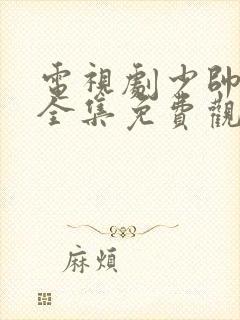 電視劇少帥
全集免費觀
麻煩